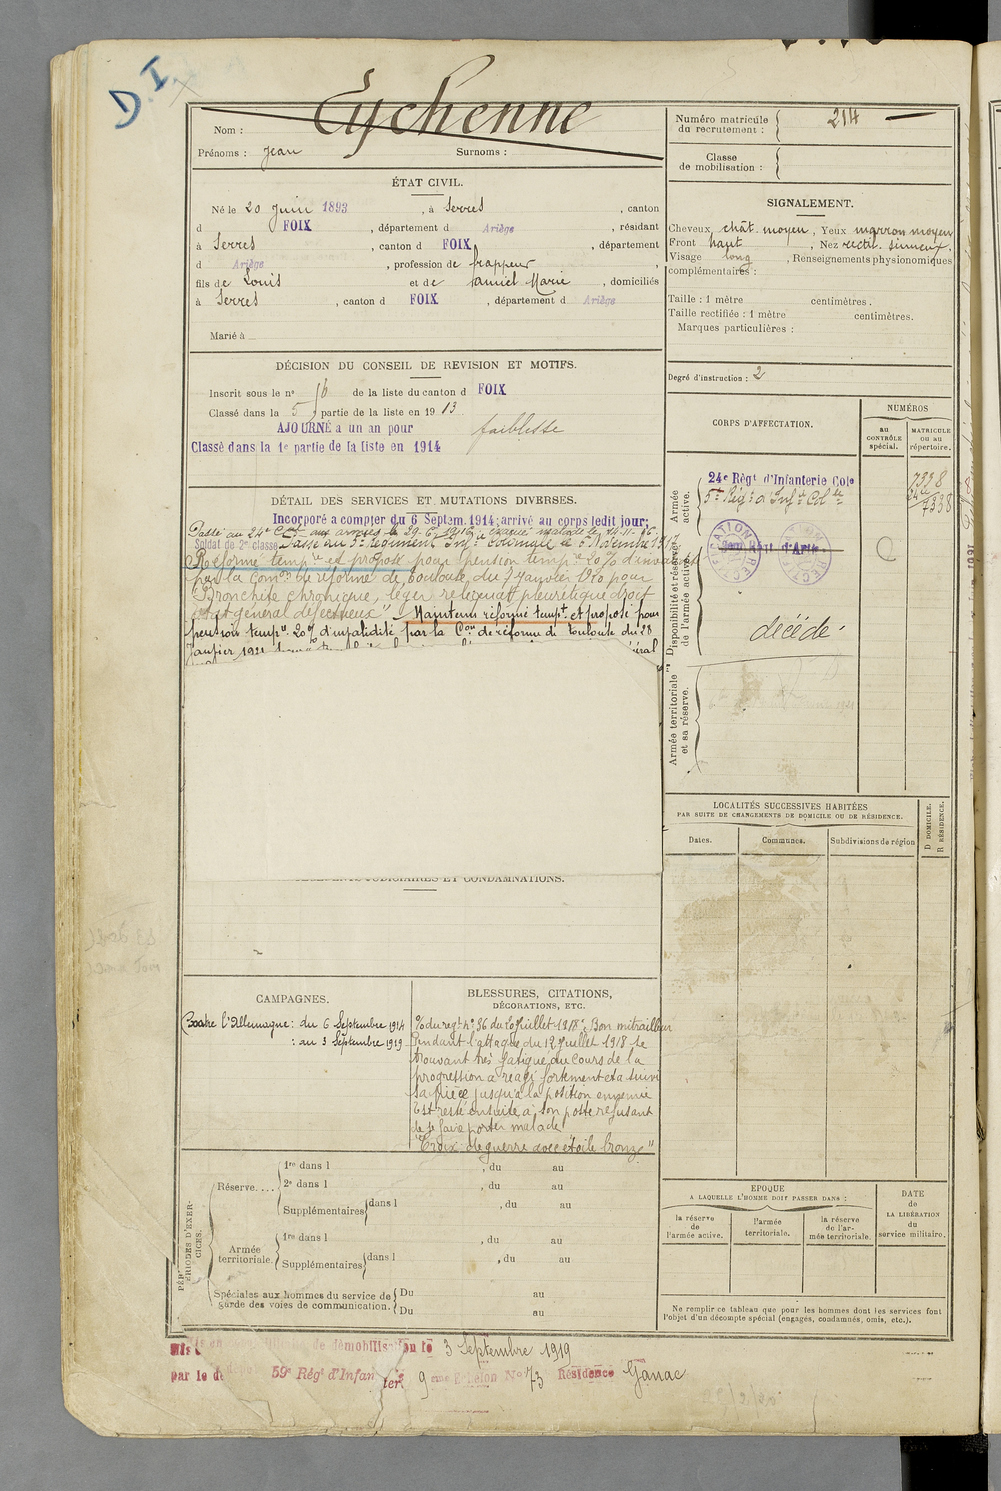 D.I.
Nom : Eychenne
Prénoms : Jean Surnoms :
Numéro matricule
du recrutement : 214
Classe
de mobilisation :
ÉTAT CIVIL.
Né le 20 Juin 1893, à Serres, canton
d FOIX, département d Ariège, résidant
à Serres, canton d FOIX, département
d Ariège, profession de frappeur,
fils de Louis et de Marie, domiciliés
à Serres, canton d FOIX, département d Ariège
Marié à
SIGNALEMENT.
Cheveux chât. moyen, Yeux marron moyen
Front haut, Nez rectil. sinueux.
Visage long, Renseignements physionomiques
complémentaires :
Taille : 1 mètre centimètres.
Taille rectifiée : 1 mètre centimètres.
Marques particulières :
Degré d'instruction : 2
DÉCISION DU CONSEIL DE REVISION ET MOTIFS.
Inscrit sous le nº de la liste du canton d FOIX
Classé dans la 5 partie de la liste en 1913
AJOURNÉ à un an pour faiblesse
Classé dans la 1e partie de la liste en 1914
DÉTAIL DES SERVICES ET MUTATIONS DIVERSES.
Incorporé à compter du 6 Septem. 1914; arrivé au corps ledit jour;
Passé au 24e Cal aux armées le 29.6.1916, évacué malade le 14.11.16.
Soldat de 2e classe Passé au 5e Régiment Inf. Coloniale le Novembre 1917
Réformé temp.re et proposé pour pension temp.re 20% d'invalidité
par la Com.on de réforme de Toulouse du 7 Janvier 1920 pour
"Bronchite chronique, léger reliquat pleurétique droit
état général défectueux" Maintenu réformé temp.t et proposé pour
pension temp.re 20% d'invalidité par la Con de réforme de Toulouse du 28
Janvier 1921
CORPS D'AFFECTATION.
NUMÉROS
au
CONTRÔLE
spécial.
MATRICULE
ou au
répertoire.
Armée
active.
24e Régt d'Infanterie Cole 7338
5e Régt d'Infie Colle 24e 7338
Disponibilité et réserve
de l'armée active.
décédé
Armée territoriale
et sa réserve.
LOCALITÉS SUCCESSIVES HABITÉES
PAR SUITE DE CHANGEMENTS DE DOMICILE OU DE RÉSIDENCE.
Dates. Communes. Subdivisions de région
D DOMICILE.
R RÉSIDENCE.
JUDICIAIRES ET CONDAMNATIONS.
CAMPAGNES.
Contre l'Allemagne : du 6 Septembre 1914
: au 3 Septembre 1919
BLESSURES, CITATIONS,
DÉCORATIONS, ETC.
% du régt nº 36 du 20 Juillet 1918 : Bon mitrailleur
Pendant l'attaque du 12 Juillet 1918 se
trouvant très fatigué au cours de la
progression a réagi fortement et a suivi
sa pièce jusqu'à la position ennemie
Est resté ensuite à son poste refusant
de se faire porter malade
"Croix de guerre avec étoile bronze"
PÉRIODES D'EXERCICES.
Réserve.... 1re dans l , du au
2e dans l , du au
Supplémentaires dans l , du au
Armée
territoriale. 1re dans l , du au
Supplémentaires dans l , du au
Spéciales aux hommes du service de
garde des voies de communication. Du au
Du au
EPOQUE
A LAQUELLE L'HOMME DOIT PASSER DANS :
la réserve
de
l'armée active.
l'armée
territoriale.
la réserve
de l'ar-
mée territoriale.
DATE
de
LA LIBÉRATION
du
service militaire.
Ne remplir ce tableau que pour les hommes dont les services font
l'objet d'un décompte spécial (engagés, condamnés, omis, etc.).
de démobilisation le 3 Septembre 1919
par le 59e Régt d'Infanterie 9eme Echelon Nº 73 Résidence Ganac